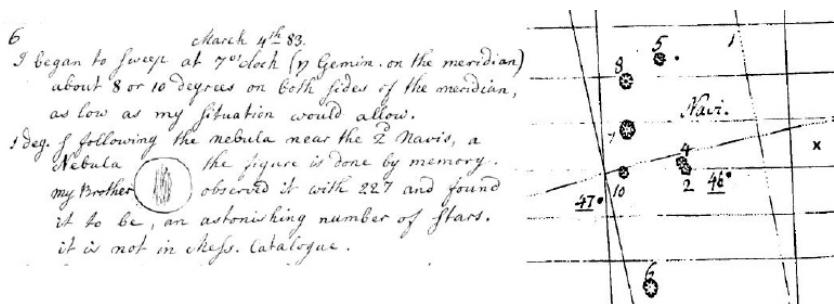 6
March 4th 83.
I began to sweep at 7 o'clock (η Gemin. on the meridian)
about 8 or 10 degrees on both sides of the meridian,
as low as my situation would allow.
1 deg. f following the nebula near the 2d Navis, a
Nebula the figure is done by memory.
my Brother observed it with 227 and found
it to be, an astonishing number of stars.
it is not in Mess. Catalogue.
5
8
Navi.
7
4
x
10
2
46
47
6